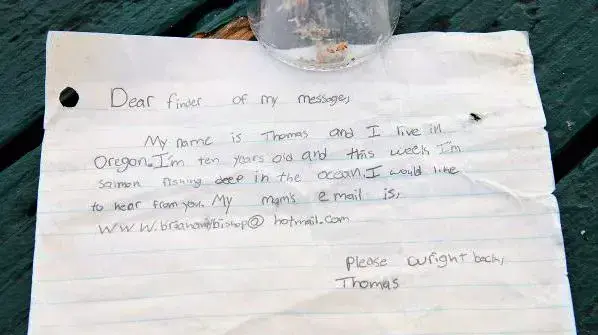 Dear finder of my message,
My name is Thomas and I live in
Oregon. I'm ten years old and this week I'm
salmon fishing deep in the ocean. I would like
to hear from you. My mom's email is,
@ hotmail.com
Please wright back,
Thomas